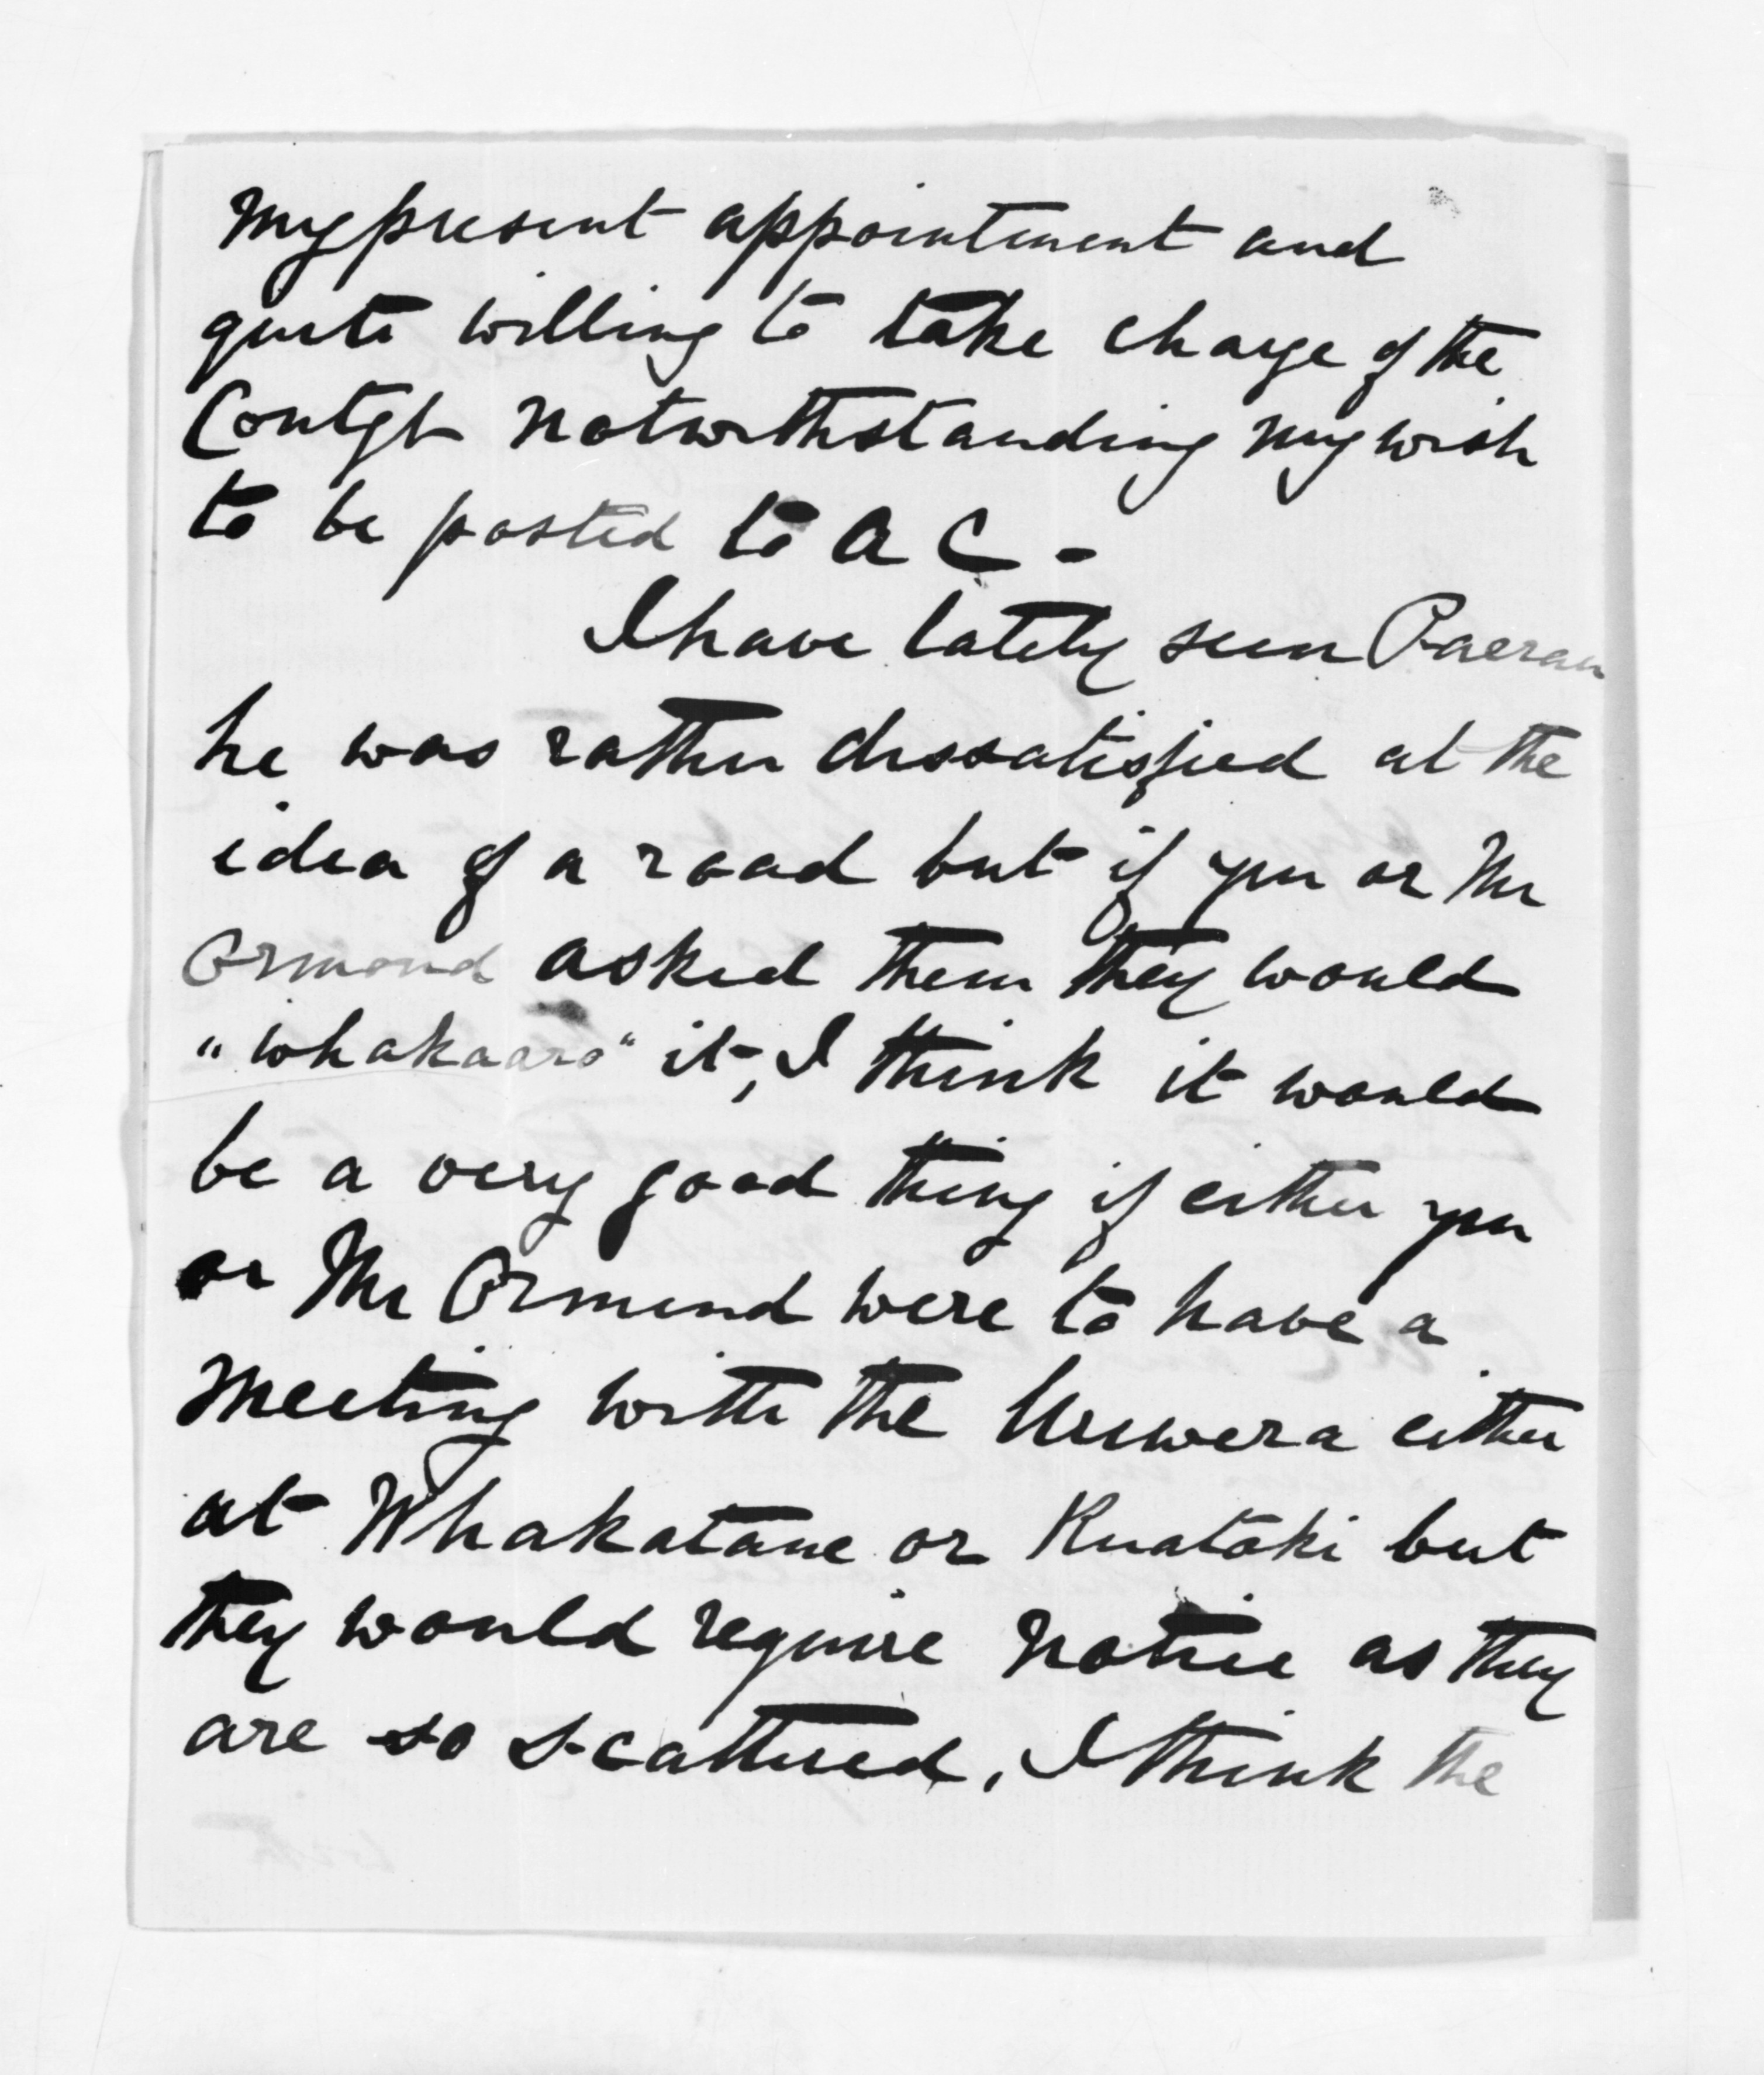 My present appointment and
quite willing to take charge of the
Contgt notwithstanding my wish
to be posted to A C -
I have lately seen Paerau
he was rather dissatisfied at the
idea of a road but if you or Mr
Ormond asked them they would
"whakaaro" it, I think it would
be a very good thing if either you
or Mr Ormond were to have a
meeting with the Urewera either
at Whakatane or Ruataki but
they would require notice as they
are so scattered, I think the